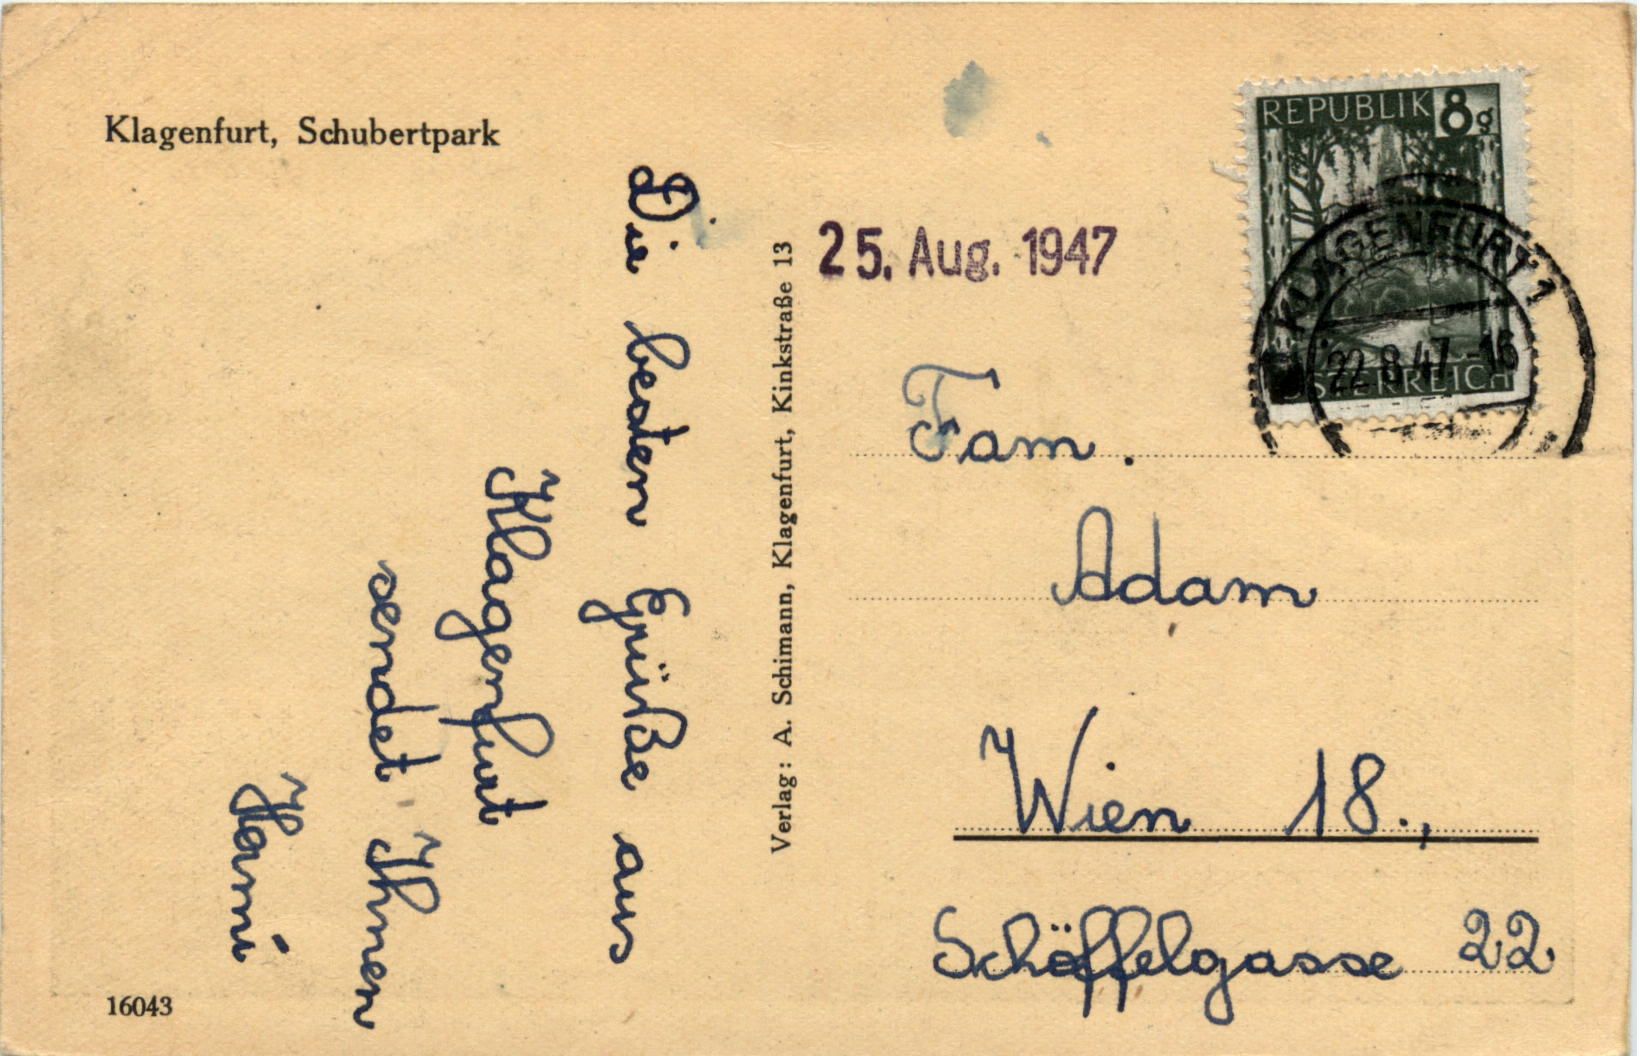 Klagenfurt, Schubertpark
Die besten Grüße aus
Klagenfurt
sendet Ihnen
Hanni
16043
Verlag: A. Schimann, Klagenfurt, Kinkstraße 13
25. Aug. 1947
REPUBLIK 8g
ÖSTERREICH
KLAGENFURT 1
22.8.47.-16
Fam.
Adam
Wien 18.,
Schöffelgasse 22